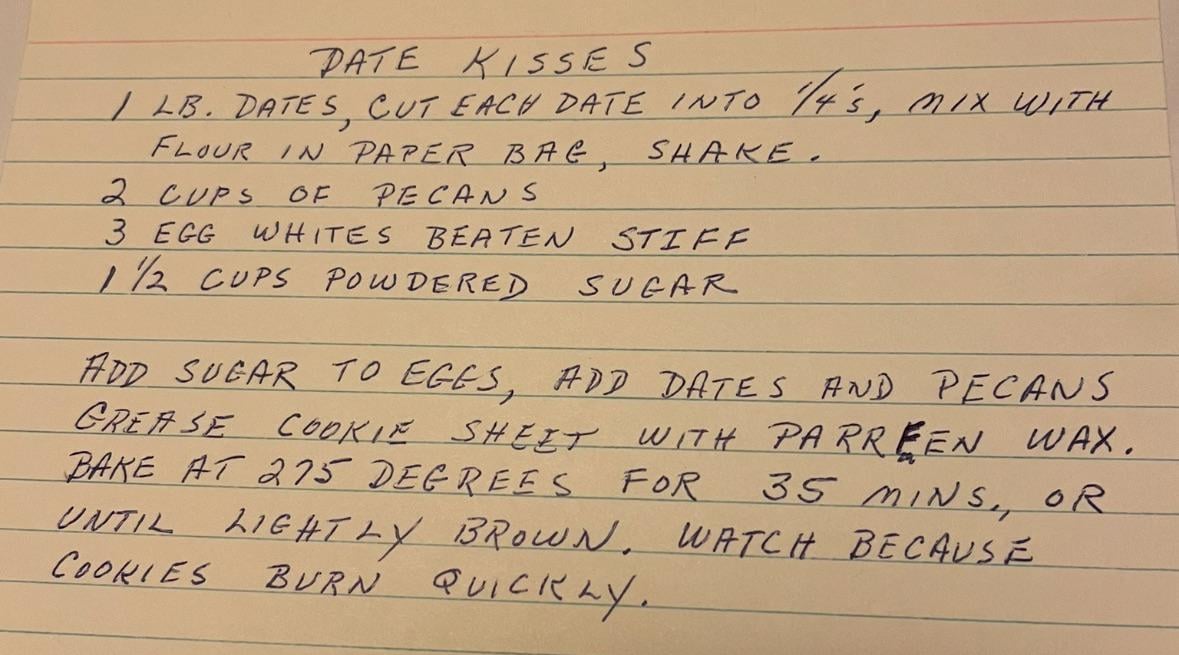 DATE KISSES
1 LB. DATES, CUT EACH DATE INTO 1/4's, MIX WITH
FLOUR IN PAPER BAG, SHAKE.
2 CUPS OF PECANS
3 EGG WHITES BEATEN STIFF
1 1/2 CUPS POWDERED SUGAR
ADD SUGAR TO EGGS, ADD DATES AND PECANS
GREASE COOKIE SHEET WITH PARREEN WAX.
BAKE AT 275 DEGREES FOR 35 MINS., OR
UNTIL LIGHTLY BROWN. WATCH BECAUSE
COOKIES BURN QUICKLY.